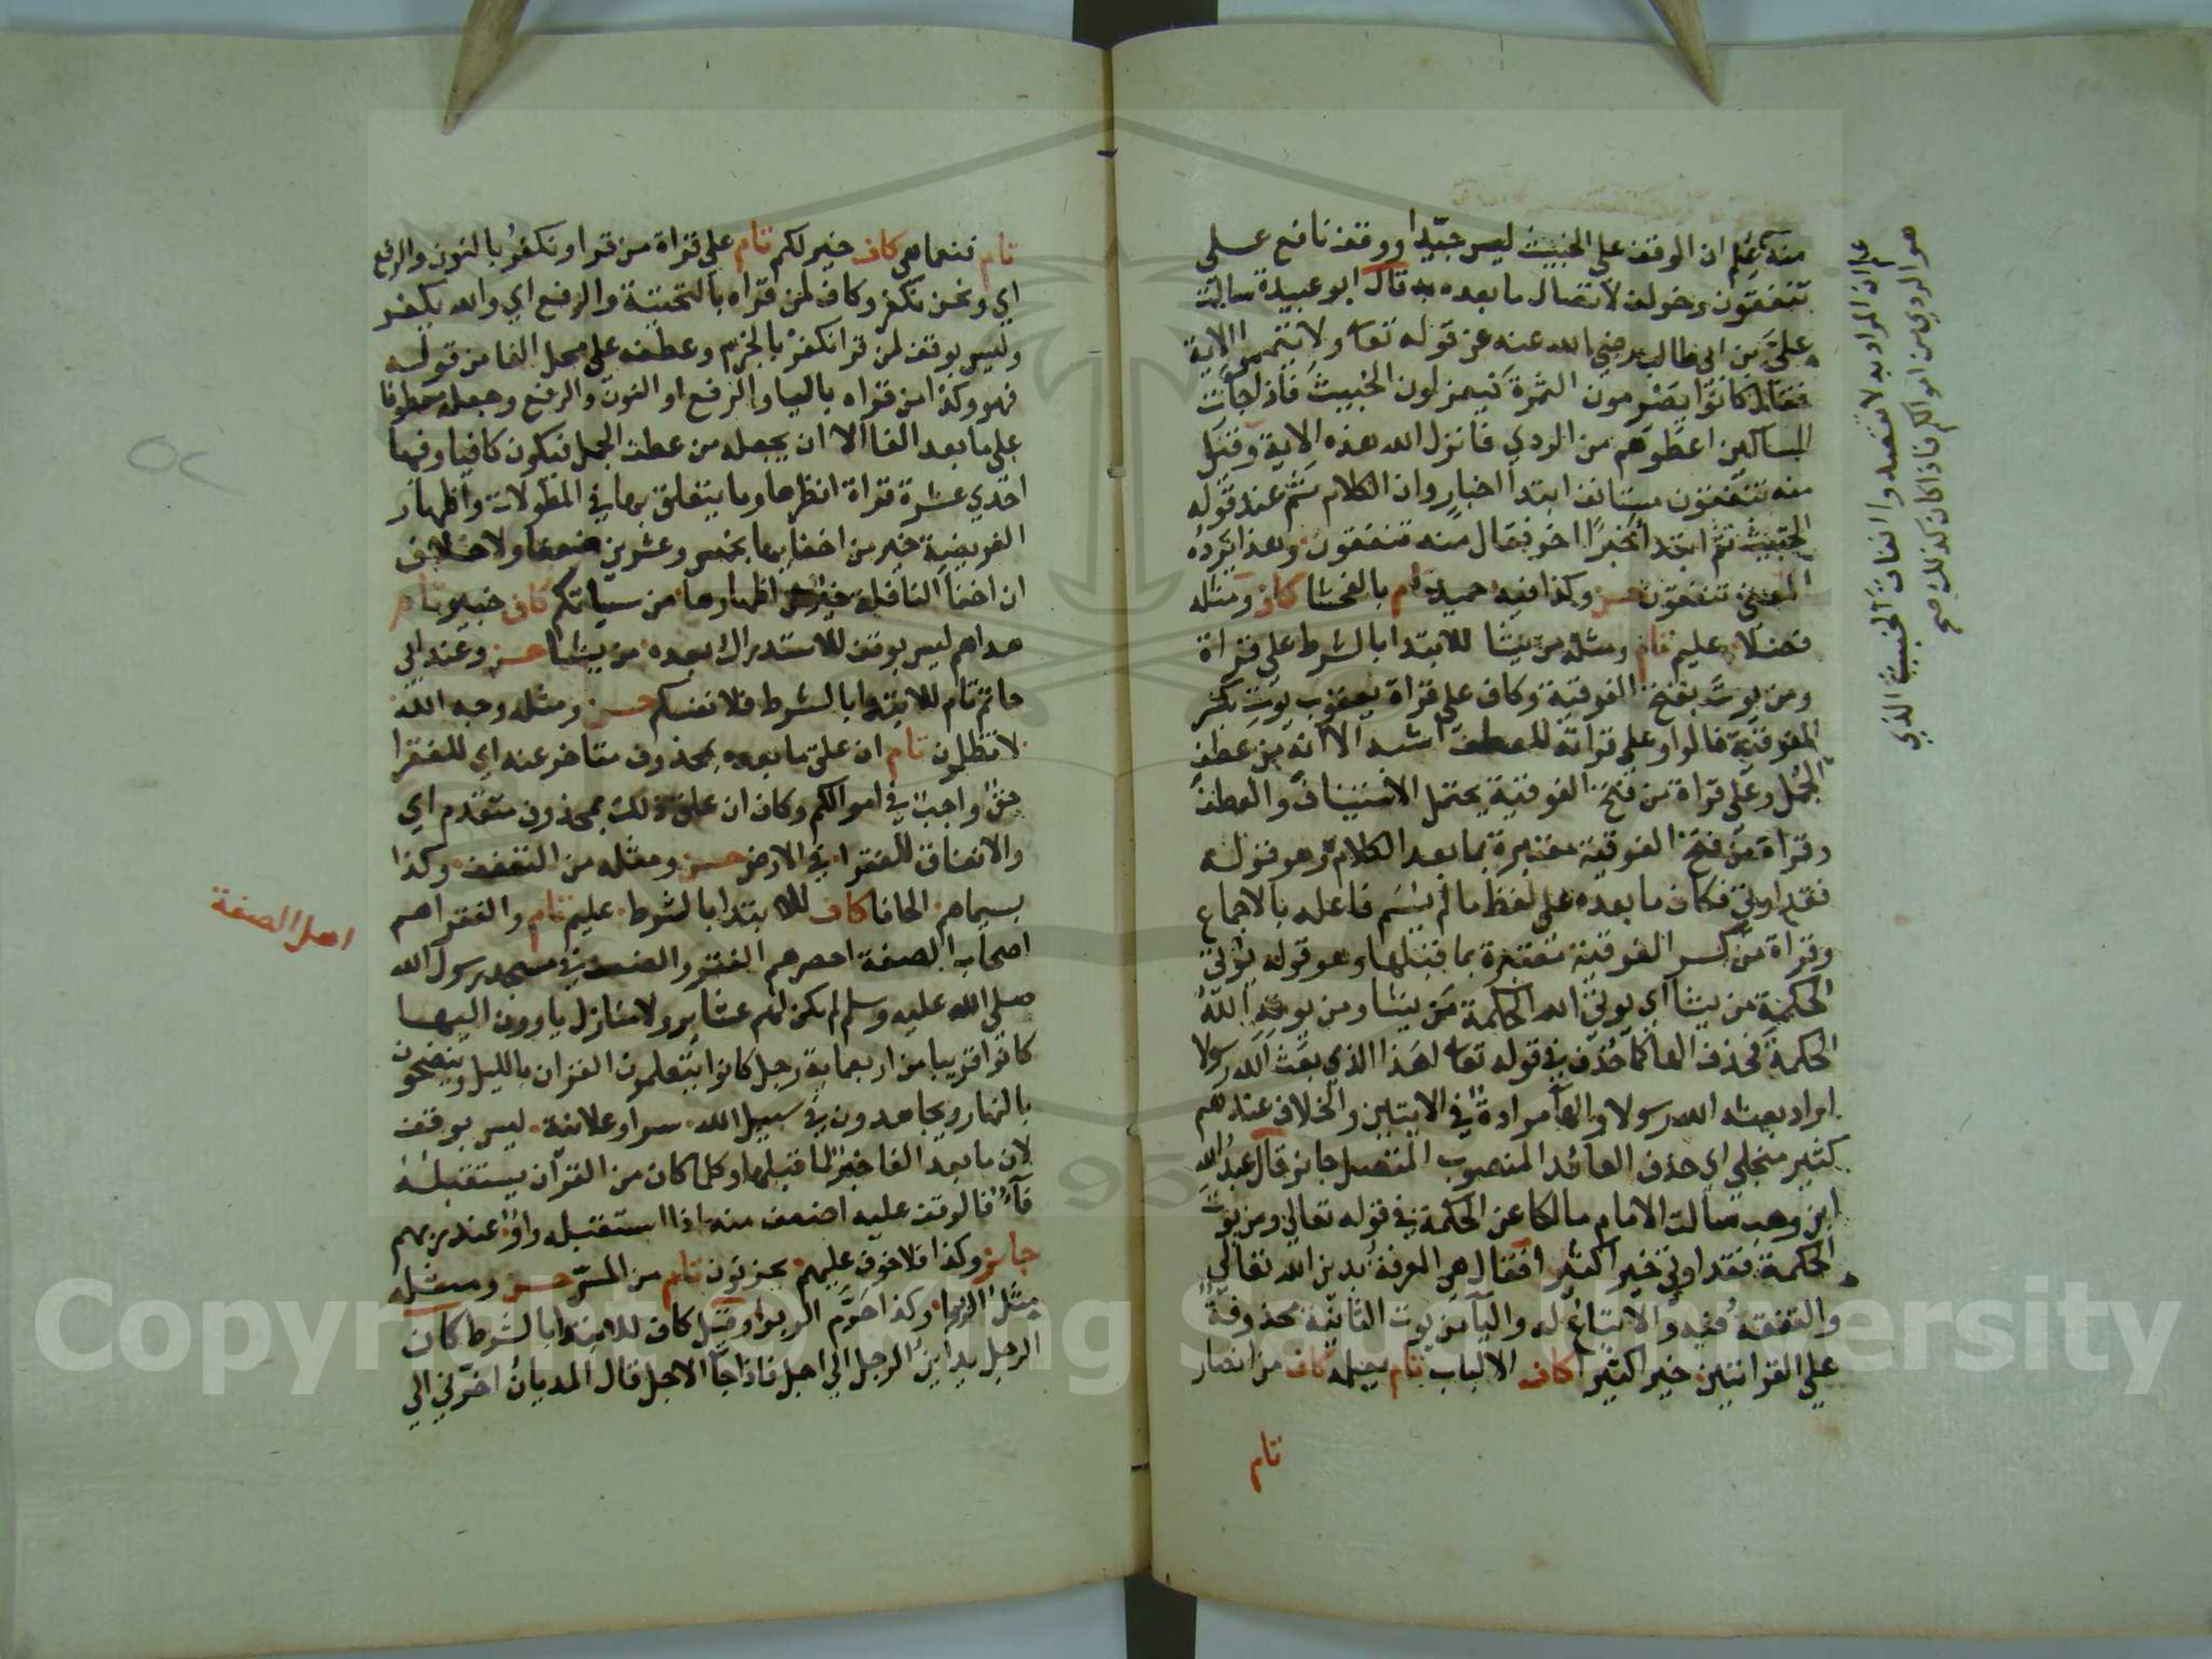 منه علم ان الوقف على الخبيث ليس جيدا ووقف نافع على
تنفقون وخولف لاتصال ما بعده به قال ابو عبيدة سالت
علي بن ابي طالب رضي الله عنه عن قوله تعا ولا تيمموا الاية
فقال كانوا يصرمون الثمرة فيعزلون الخبيث فاذا جات
المساكين اعطوهم من الردي فانزل الله هذه الاية وقيل
منه تنفقون مستانف ابتدا اخبار وان الكلام تم عند قوله
الخبيث ثم ابتدا خبرا اخر فقال منه تنفقون وهذا يرده
المعنى تنفقون حسن وكذا فيه حميد تام بالفحشا كاف ومثله
وفضلا عليم تام ومثله من يشا للابتدا بالشرط على قراة
ومن يوت بفتح الفوقية وكاف على قراة يعقوب يوت بكسر
الفوقية فالواو على قراته للعطف اشبه الا انه من عطف
الجمل وعلى قراة من فتح الفوقية يحتمل الاستيناف والعطف
وقراة من فتح الفوقية معتبرة بما بعد الكلام وهو قوله
فقد اوتي فكان ما بعده على لفظ ما لم يسم فاعله بالاجماع
وقراة من كسر الفوقية معتبرة بما قبلها وهو قوله يوتي
الحكمة من يشا اي يوتي الله الحكمة من يشا ومن يوته الله
الحكمة فحذف الها كما حذف في قوله تعا اهذا الذي بعث الله رسولا
اراد بعثه الله رسولا والها مرادة في الايتين والخلاف عندهم
كثير منجلي اي حذف العائد المنصوب المتصل جائز قال عبد الله
ابن وهب سالت الامام مالكا عن الحكمة في قوله تعالي ومن يوت
الحكمة فقد اوتي خيرا كثيرا فقال هي المعرفة بدين الله تعالي
والتفقه فيه والاتباع له واليا من يوت الثانية محذوفة
على القرانتين خيرا كثيرا كاف الالباب تام يعلمه كاف من انصار
تام
علم ان المراد به لا تقصدوا انفاق الخبيث الذي
هو الردي من اموالكم فاذا كان كذلك صح
تام فنعماهي كاف خير لكم تام على قراة من قرا ونكفر بالنون والرفع
اي ونحن نكفر وكاف لمن قراه بالتحتية والرفع اي والله يكفر
وليس بوقف لمن قرا نكفر بالجزم وعطفه على محل الفا من قوله
فهو وكذا من قراه باليا والرفع او النون والرفع وجعله معطوفا
على ما بعد الفا الا ان يجعله من عطف الجمل فيكون كافيا وفيها
احدي عشرة قراة انظرها وما يتعلق بها في المطولات واظهار
الفريضة خير من اخفايها بخمس وعشرين ضعفا ولا خلاف
ان اخفا النافلة خير من اظهارها من سياتكم كاف خبير تام
هداهم ليس بوقف للاستدراك بعده من يشا حسن وعند ابي
حاتم تام للابتدا بالشرط فلانفسكم حسن ومثله وجه الله
لا تظلمون تام ان علق ما بعده بمحذوف متاخر عنه اي للفقرا
حق واجب في اموالكم وكاف ان علق ذلك بمحذوف متقدم اي
والانفاق للفقرا في الارض حسن ومثله من التعفف وكذا
بسيماهم الحافا كاف للابتدا بالشرط عليم تام والفقرا هم
اصحاب الصفة احصرهم الفقر والضعف في مسجد رسول الله
صلى الله عليه وسلم لم يكن لهم عشاير ولا منازل ياوون اليها
كانوا قريبا من اربعماية رجل كانوا يتعلمون القران بالليل وينضحون
بالنهار ويجاهدون في سبيل الله سرا وعلانية ليس بوقف
لان ما بعد الفا خبر لما قبلها وكلما كان من القران يستقبله
فاء فالوقف عليه اضعف منه اذا استقبله واو عند ربهم
جائز وكذا فلا خوف عليهم يحزنون تام من المس حسن ومثله
مثل الربا وكذا حرم الربوا وقيل كاف للابتدا بالشرط كان
الرجل يداين الرجل الي اجل فاذا جا الاجل قال المديان اخرني الي
اهل الصفة